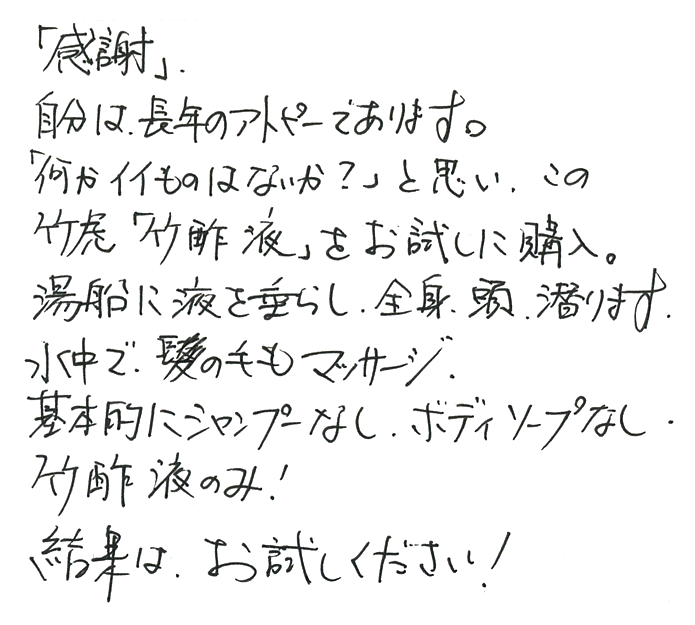 「感謝」.
自分は、長年のアトピーであります。
「何かイイものはないか？」と思い、この
竹虎「竹酢液」をお試しに購入。
湯船に液を垂らし、全身、頭、潜ります.
水中で、髪の毛もマッサージ.
基本的にシャンプーなし、ボディソープなし.
竹酢液のみ！
結果は、お試しください！